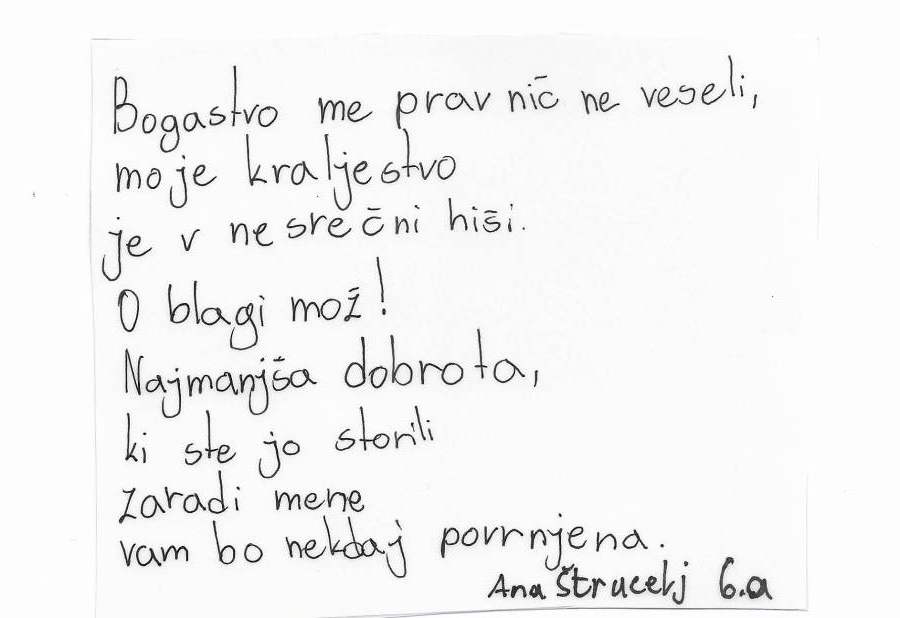 Bogastvo me prav nič ne veseli,
moje kraljestvo
je v nesrečni hiši.
O blagi mož!
Najmanjša dobrota,
ki ste jo storili
zaradi mene
vam bo nekdaj povrnjena.
Ana Štrucelj 6.a